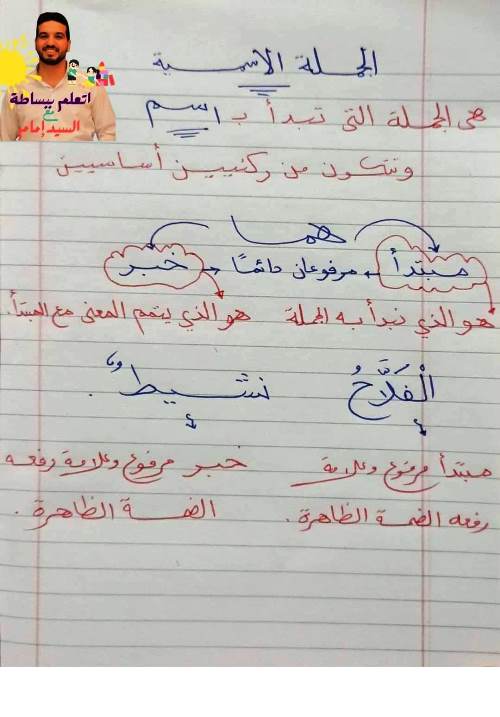 اتعلم ببساطة
مع
السيد إمام
الجملة الاسمية
هي الجملة التي تبدأ بـ اسم
وتتكون من ركنيين أساسيين
هما
مبتدأ ← مرفوعان دائمًا → خبر
هو الذي نبدأ به الجملة هو الذي يتمم المعنى مع المبتدأ.
الْفَلَّاحُ نشيطٌ.
مبتدأ مرفوع وعلامة خبر مرفوع وعلامة رفعه
رفعه الضمة الظاهرة. الضمة الظاهرة.